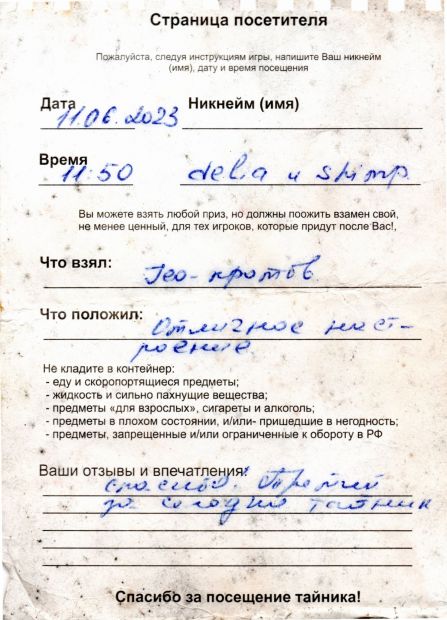 Страница посетителя
Пожалуйста, следуя инструкциям игры, напишите Ваш никнейм
(имя), дату и время посещения
Дата 11.06.2023 Никнейм (имя)
Время 11:50 delia и shimp
Вы можете взять любой приз, но должны поожить взамен свой,
не менее ценный, для тех игроков, которые придут после Вас!,
Что взял: Гео-кротов
Что положил: Отличное наст-
роение
Не кладите в контейнер:
- еду и скоропортящиеся предметы;
- жидкость и сильно пахнущие вещества;
- предметы «для взрослых», сигареты и алкоголь;
- предметы в плохом состоянии, и/или- пришедшие в негодность;
- предметы, запрещенные и/или ограниченные к обороту в РФ
Ваши отзывы и впечатления:
спасибо. Третий
за сегодня тайник
Спасибо за посещение тайника!